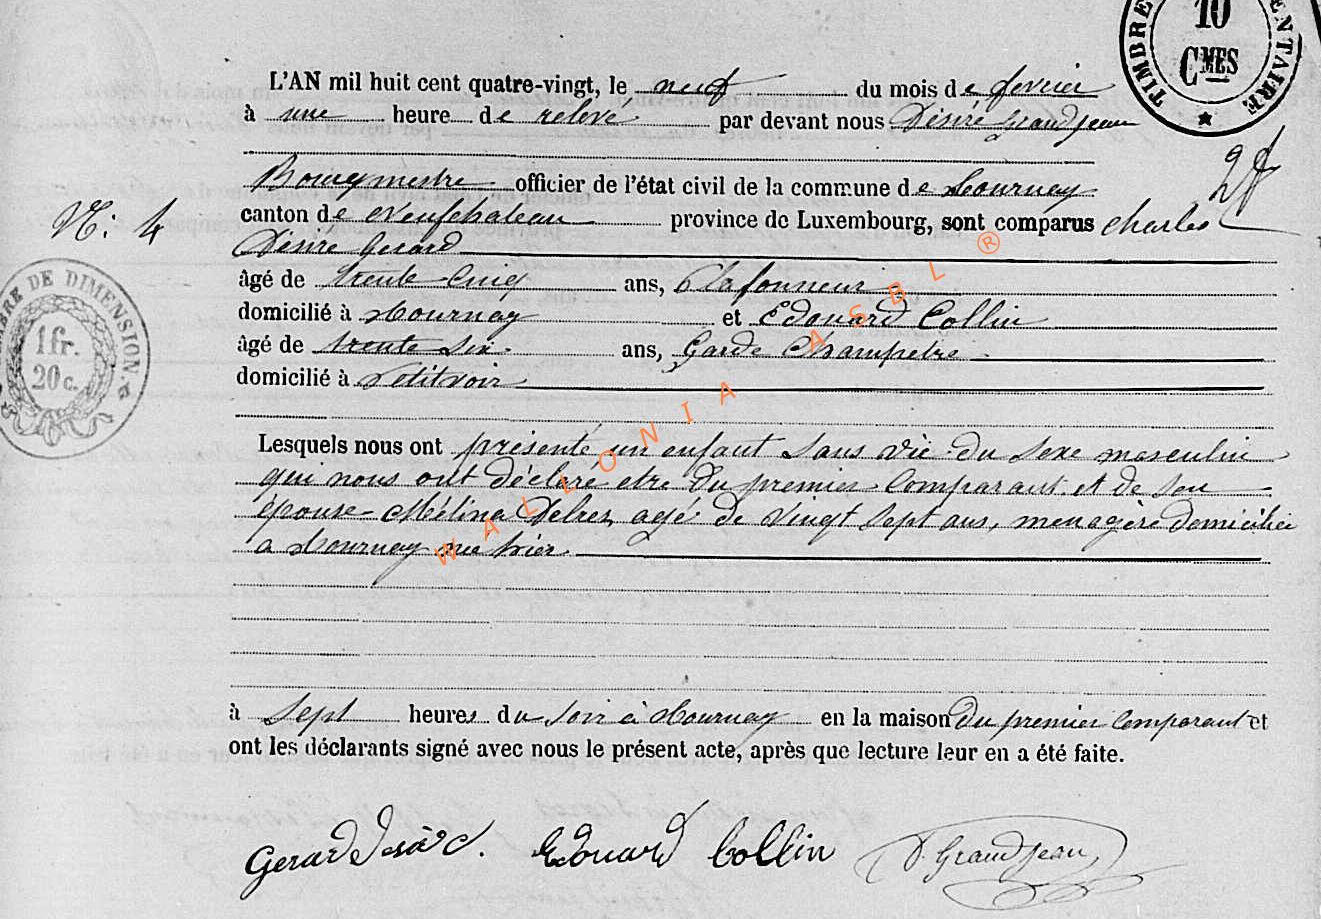 TIMBRE
ENTAIRE
10
CMES
L'AN mil huit cent quatre-vingt, le neuf du mois de fevrier
à une heure de relevé par devant nous Désiré Grandjean
Bourgmestre officier de l'état civil de la commune de Tournay
2d
N: 4
canton de Neufchateau province de Luxembourg, sont comparus Charles
Désiré Gerard
âgé de trente-Cinq ans, Plafonneur
domicilié à Tournay et Edouard Collin
âgé de trente Six ans, Garde Champetre
domicilié à Petitvoir
BRE DE DIMENSION
1 fr.
20 c.
Lesquels nous ont présenté un enfant sans vie du sexe masculin
qui nous ont déclaré etre du premier Comparant et de son
épouse Mélina agé de Vingt Sept ans, menagère domicilié
a Tournay né hier
à Sept heures du soir à Tournay en la maison du premier Comparant et
ont les déclarants signé avec nous le présent acte, après que lecture leur en a été faite.
Gerard Edouard Collin D. Grandjean
WALLONIA ASBL ®